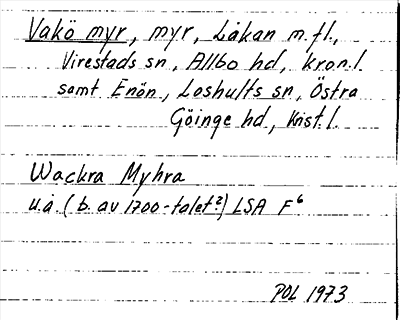 Vakö myr, myr, Låkan m.fl.,
Virestads sn, Allbo hd, kron.l.
samt Enön, Loshults sn, Östra
Göinge hd, Krist.l.
Wackra Myhra
u.å. (b. av 1700-talet?) LSA F⁶
POL 1973